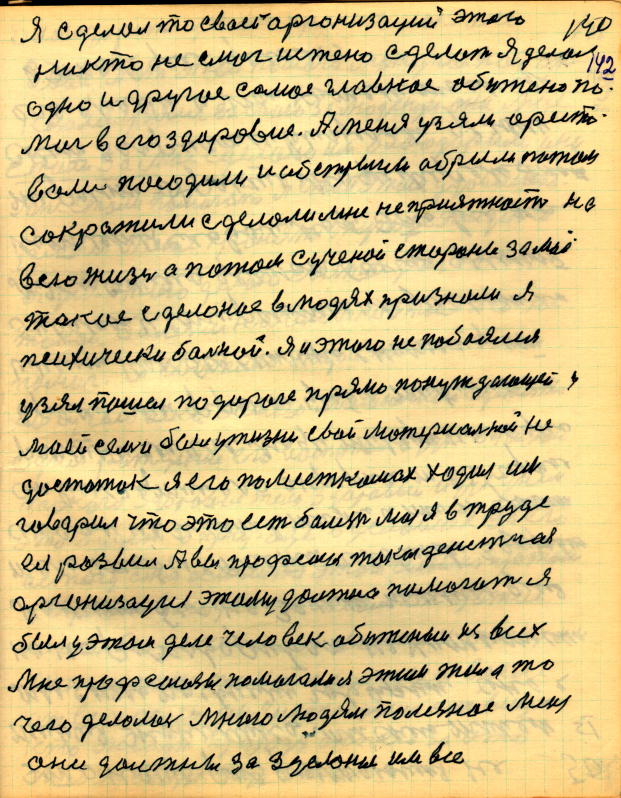 Я сделал то своей организаций этого 140
никто не смог и тено сделат Я делал 142
одно и другое самое главное обижено по-
мог в его здоровие. А меня узяли аресто-
вали посадили и обстригли обрили потом
сократили сделали мне неприятност на
всю жизн а потом с ученой стороны за моё
такое сделоное в людях признали я
психически балной. Я и этого не побоялся
узял пошел по дороге прямо понуждающей у
маей семи был у жизни свой материалной не
достаток я его по месткомах ходил им
говарил что это ест балезн моя я в труде
ея розвил А вы професии такая
организация этому должна помогат я
был у этом деле человек обиженый из всех
Мне професоюзы помогали я этим жил а то
чего делолос много людям полезное меня
они должны за зделоныи им все